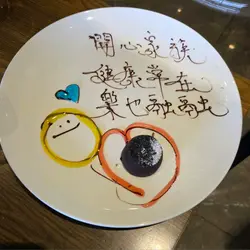 開心家族
健康常在
樂也融融